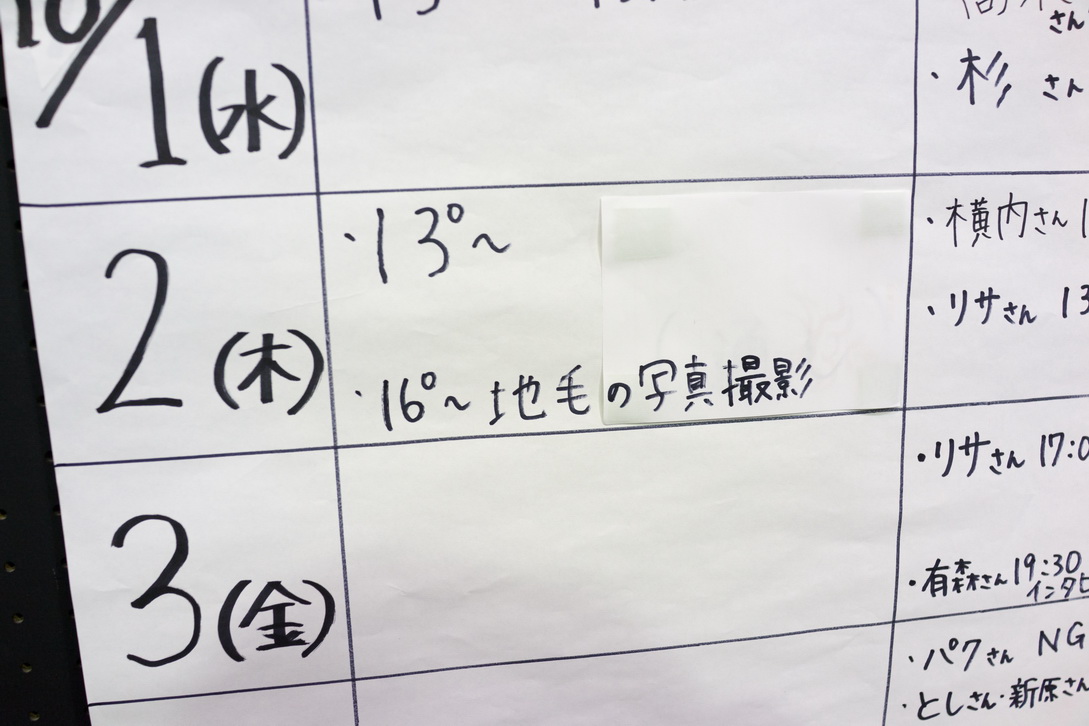 10/1(水)
杉 さん
2(木)
・13°~
・16°~地毛の写真撮影
・横内さん 1
・リサさん 13
3(金)
・リサさん 17:0
・有森さん 19:30
インタビ
・パクさん NG
・としさん・新原さん